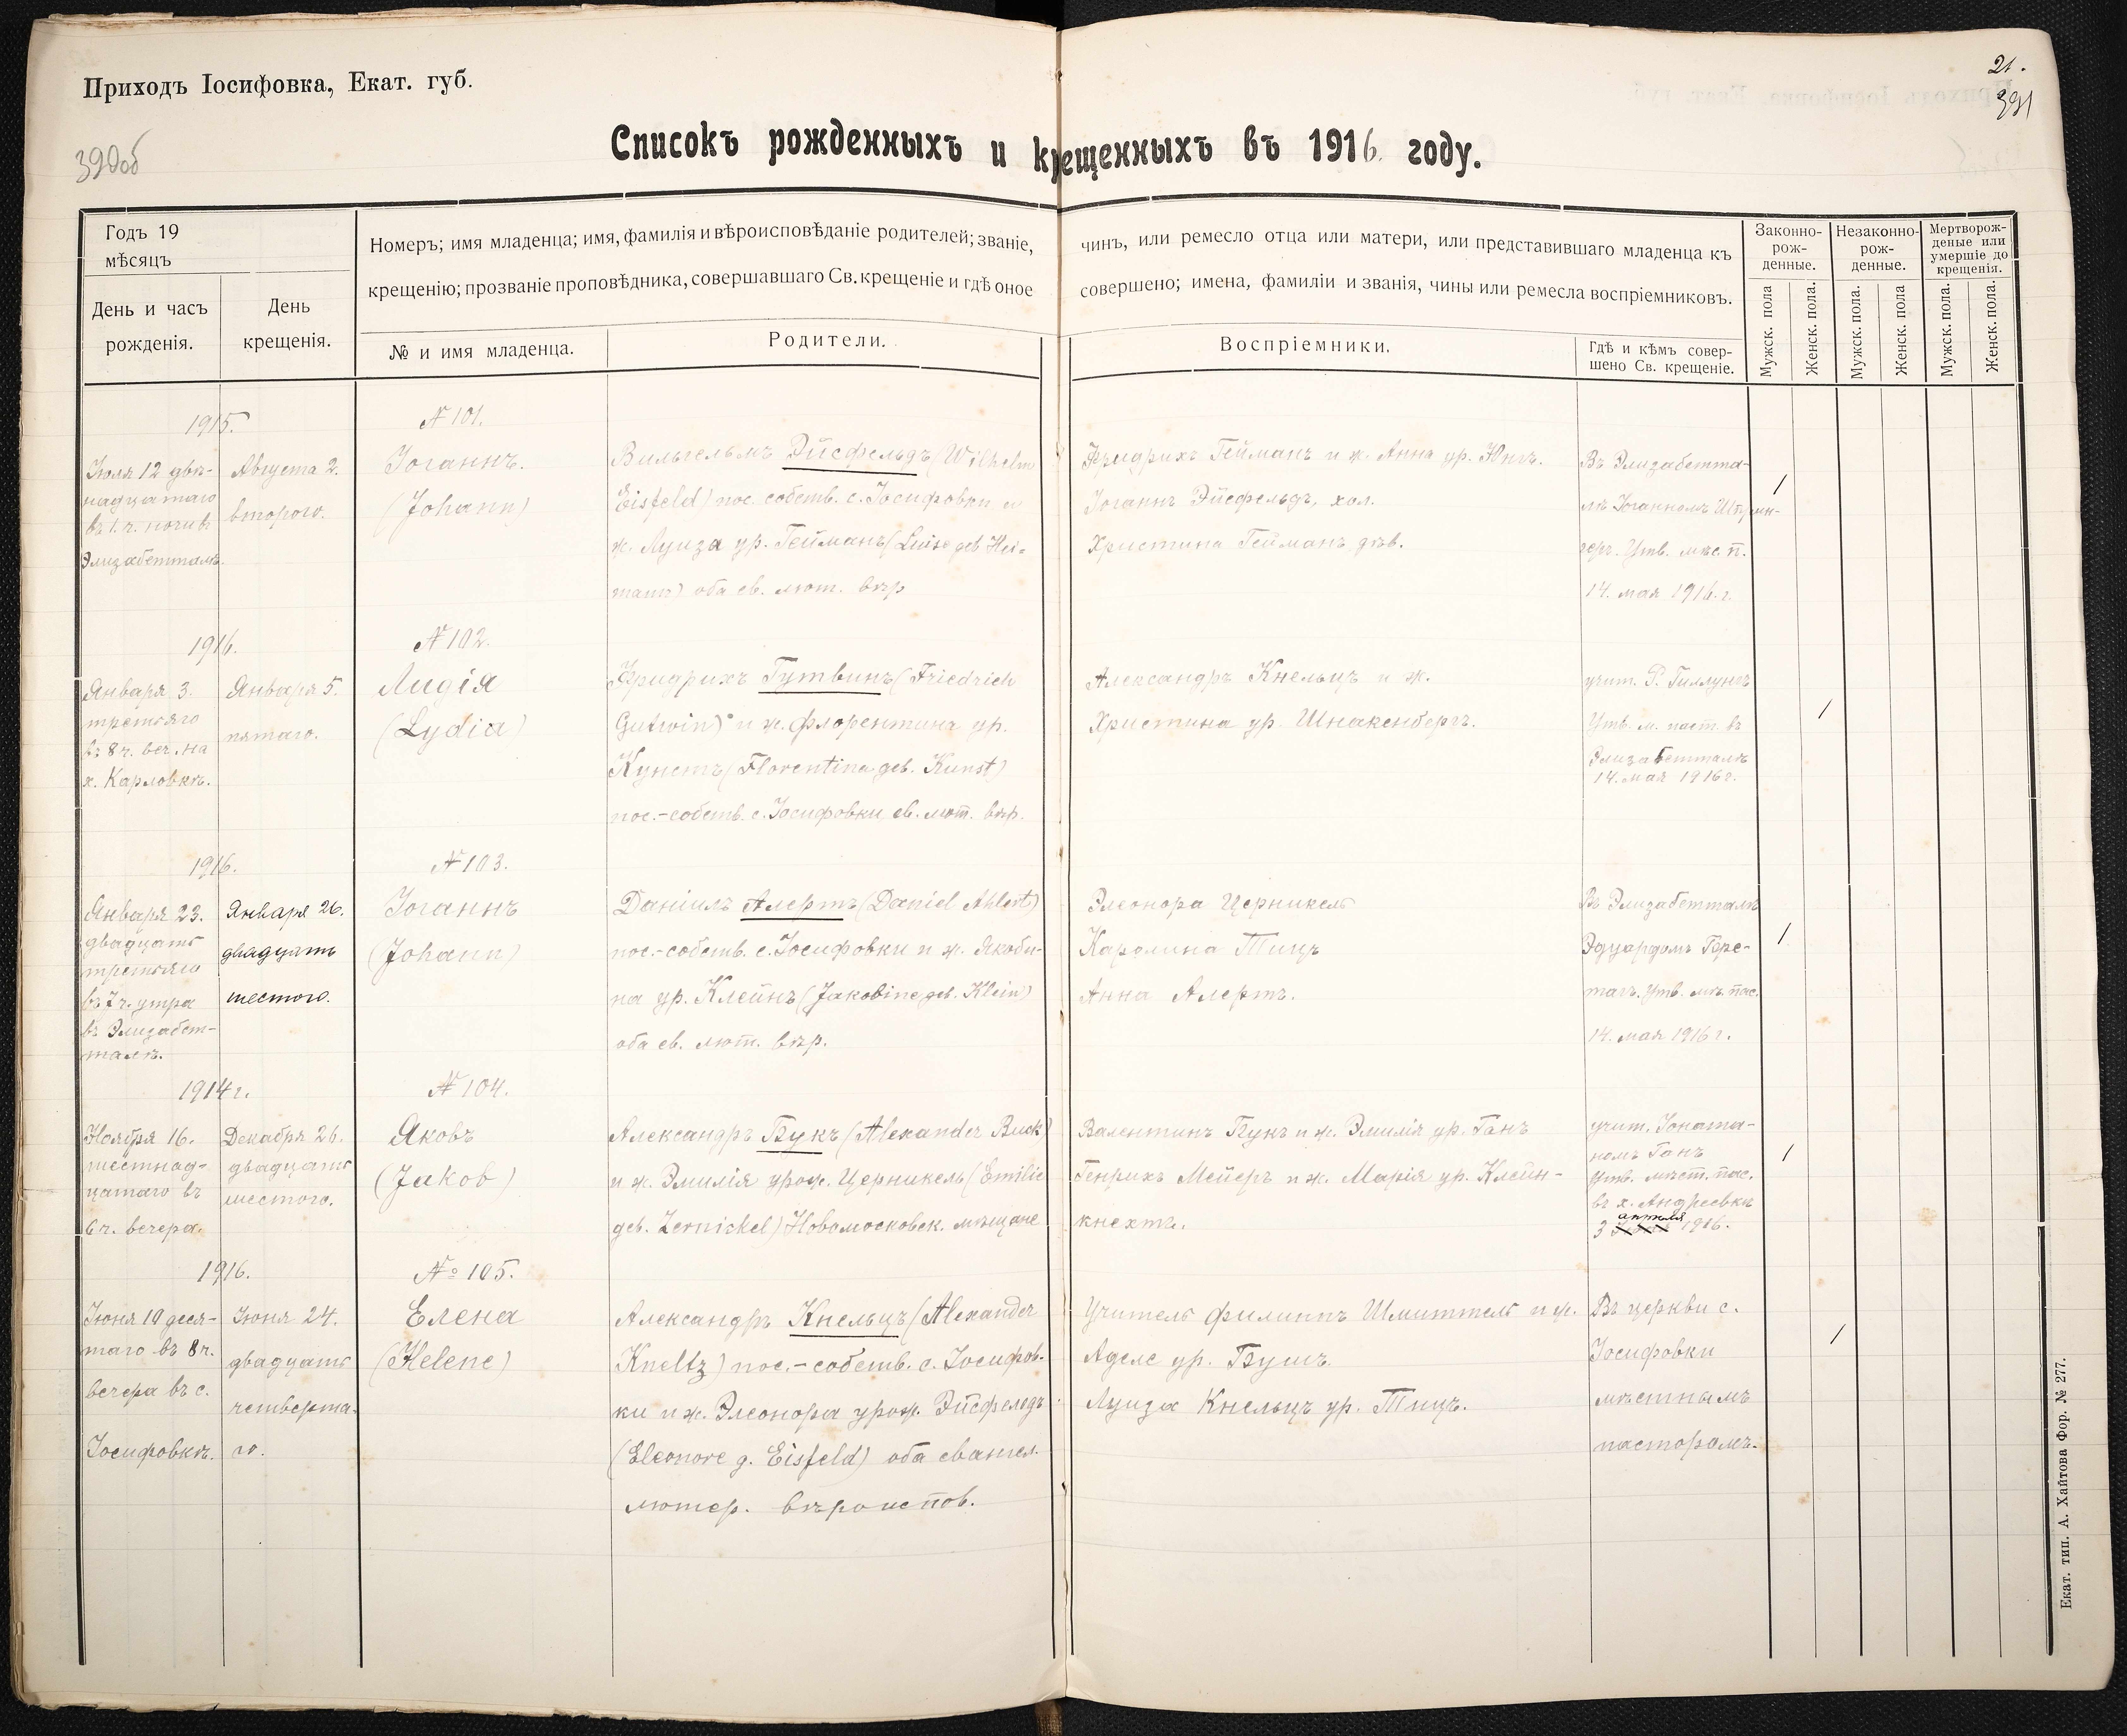 Приходъ Іосифовка, Екат. губ.
21.
391
390об
Списокъ рожденныхъ и крещенныхъ въ 1916 году.
Годъ 19
мѣсяцъ
День и часъ
рожденія.
День
крещенія.
Номеръ; имя младенца; имя, фамилія и вѣроисповѣданіе родителей; званіе, чинъ, или ремесло отца или матери, или представившаго младенца къ
крещенію; прозваніе проповѣдника, совершавшаго Св. крещеніе и гдѣ оное совершено; имена, фамиліи и званія, чины или ремесла воспріемниковъ.
№ и имя младенца.
Родители.
Воспріемники.
Гдѣ и кѣмъ совер-
шено Св. крещеніе.
Законно-
рож-
денные.
Незаконно-
рож-
денные.
Мертворож-
деные или
умершіе до
крещенія.
Мужск. пола
Женск. пола.
Мужск. пола.
Женск. пола
Мужск. пола.
Женск. пола.
1915.
Іюля 12 двѣ-
надцатаго
въ 1 ч. ночи въ
Элизабетталѣ.
Августа 2.
второго.
№ 101.
Іоганнъ.
(Johann)
Вильгельмъ Эйсфельдъ (Wilhelm
Eisfeld) пос. собств. с. Іосифовки и
ж. Луиза ур. Гейманъ (Luise geb. Hei-
mann) оба ев. лют. вѣр
Фридрихъ Гейманъ и ж. Анна ур. Юнгъ.
Іоганнъ Эйсфельдъ, хол.
Христина Гейманъ дѣв.
Въ Элизабетта-
лѣ Іоганномъ
Утв. мѣс. п.
14. мая 1916. г.
1
1916.
Января 3.
третьяго
въ 8 ч. веч. на
х. Карловкѣ.
Января 5.
пятаго.
№ 102.
Лидія
(Lydia)
Фридрихъ Гутвинъ (Friedrich
Gutwin) и ж. Флорентина ур.
Кунстъ (Florentina geb. Kunst)
пос.-собств. с. Іосифовки ев. лют. вѣр.
Александръ Кнельцъ и ж.
Христина ур. Шнакенбергъ.
учит. Р. Гиллунгъ
Утв. м. паст. въ
Элизабетталѣ
14. мая 1916 г.
1
1916.
Января 23.
двадцать
третьяго
въ 7 ч. утра
въ Элизабет-
талѣ.
Января 26.
двадцать
шестого.
№ 103.
Іоганнъ
(Johann)
Даніилъ Алертъ (Daniel Ahlert)
пос.-собств. с. Іосифовки и ж. Якоби-
на ур. Клейнъ (Jakobine geb. Klein)
оба ев. лют. вѣр.
Элеонора Церникель
Каролина Тицъ
Анна Алертъ.
Въ Элизабетталѣ
Эдуардомъ Гере-
Утв. мѣ. пас.
14. мая 1916 г.
1
1914 г.
Ноября 16.
шестнад-
цатаго въ
6 ч. вечера.
Декабря 26.
двадцать
шестого.
№ 104.
Яковъ
(Jakob)
Александръ Букъ (Alexander Buck)
и ж. Эмилія урож. Церникель (Emilie
geb. Zernickel) Новомосковск. мѣщане
Валентинъ Букъ и ж. Эмилія ур. Ганъ
Генрихъ Мейеръ и ж. Марія ур. Клейн-
кнехтъ.
учит. Іоната-
номъ Ганъ
Утв. мѣст. пас.
въ х. Андреевкѣ
апрѣля
3 1916.
1
1916.
Іюня 10 деся-
таго въ 8 ч.
вечера въ с.
Іосифовкѣ.
Іюня 24.
двадцать
четверта-
го.
№ 105.
Елена
(Helene)
Александръ Кнельцъ (Alexander
Kneltz) пос.-собств. с. Іосифов-
ки и ж. Элеонора урож. Эйсфельдъ
(Eleonore g. Eisfeld) оба евангел.
лютер. вѣроиспов.
Учитель Филиппъ Шмиттель и ж.
Аделе ур. Бушъ.
Луиза Кнельцъ ур. Тицъ.
Въ церкви с.
Іосифовки
мѣстнымъ
пасторомъ.
1
Екат. тип. А. Хайтова Фор. № 277.